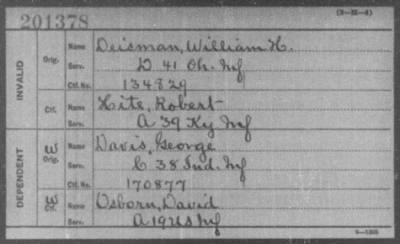 (3-22-8)
201378
INVALID
Orig. Name Deisman, William H.
Serv. D 41 Oh. Inf
Ctf. No. 134829
Ctf. Name Hite, Robert
Serv. A 39 Ky Inf
DEPENDENT
W Orig. Name Davis, George
Serv. C 38 Ind. Inf
Ctf. No. 170877
W Ctf. Name Osborn, David
Serv. A 19 US Inf